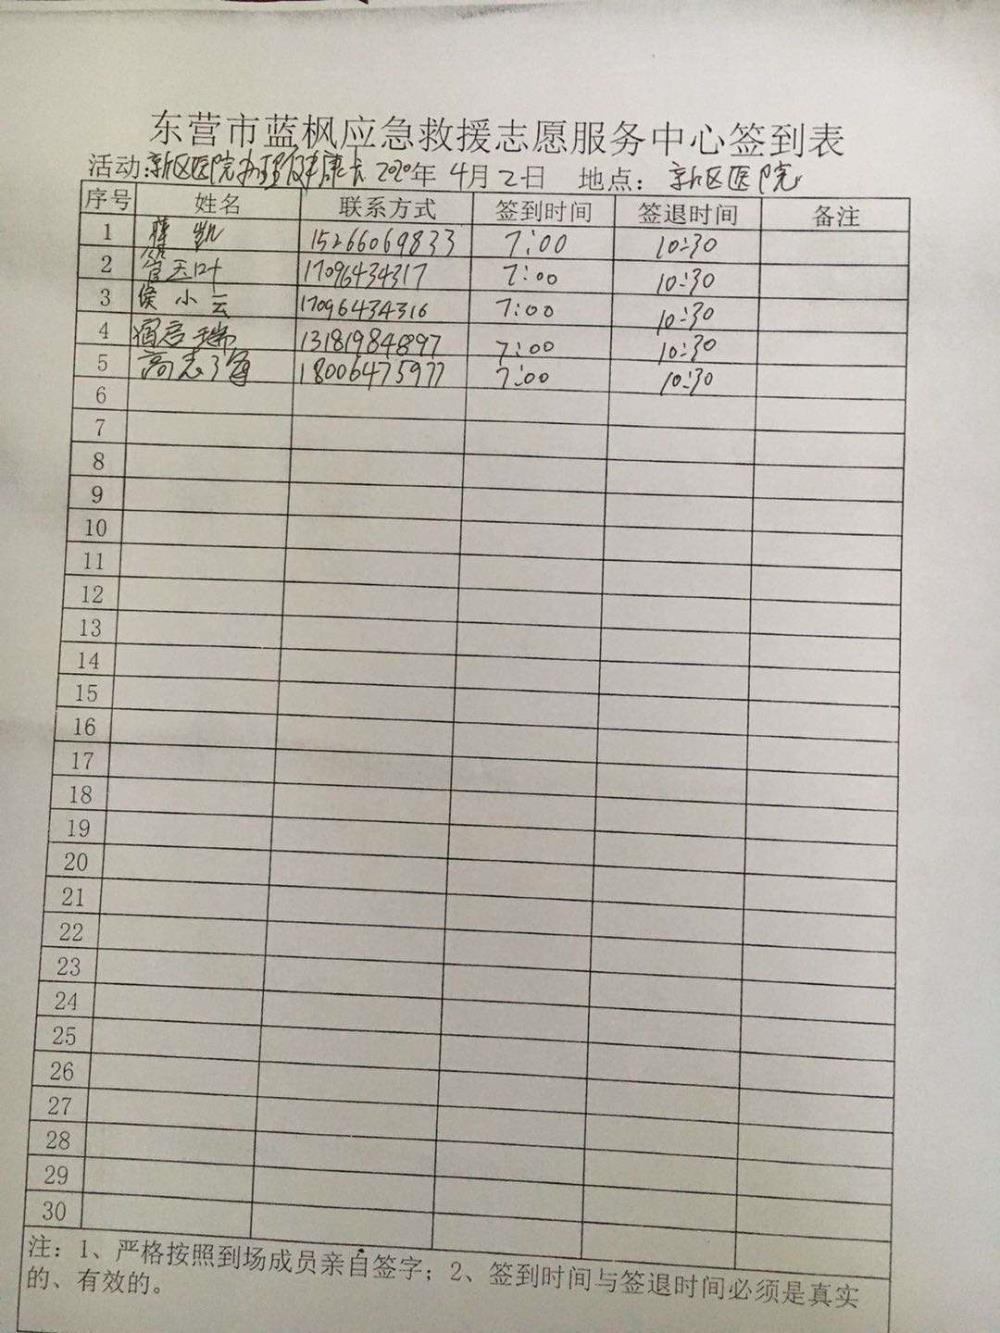 东营市蓝枫应急救援志愿服务中心签到表
活动:新区医院办理健康卡 2020年 4月2日 地点：新区医院
序号 姓名 联系方式 签到时间 签退时间 备注
1 凯 15266069833 7:00 10:30
2 管玉叶 17096434317 7:00 10:30
3 侯小云 17096434316 7:00 10:30
4 瑞 13181984897 7:00 10:30
5 高志海 18006475977 7:00 10:30
6
7
8
9
10
11
12
13
14
15
16
17
18
19
20
21
22
23
24
25
26
27
28
29
30
注：1、严格按照到场成员亲自签字；2、签到时间与签退时间必须是真实
的、有效的。